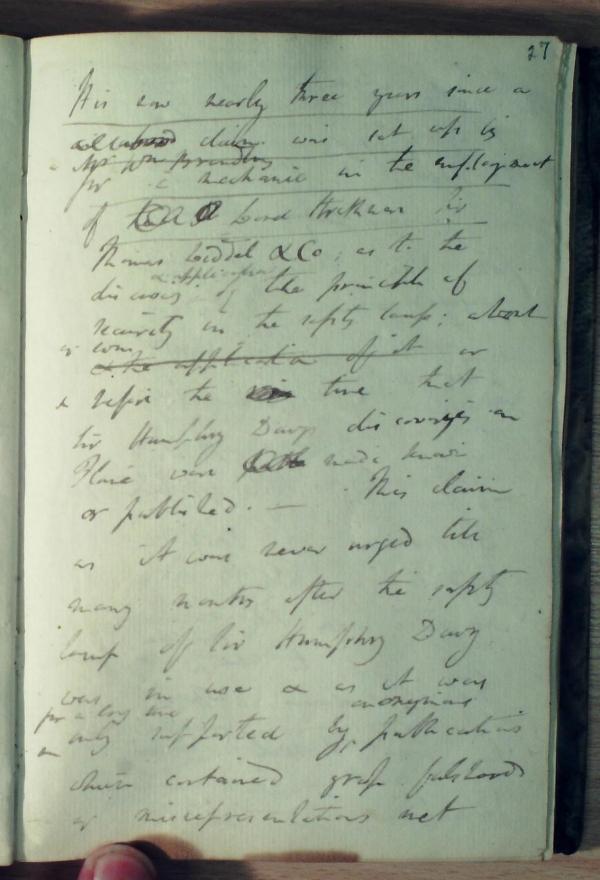 27
It is now nearly three years since a
claim was set up by
for a mechanic in the employment
of Lord
Thomas Liddel & Co; as to the
& application
discovery of the principle of
security in the safety lamp; about
& the application of it or
& before the time that
Sir Humphry Davys discoveries on
Flame were made known
or published. — This claim
as it was never urged till
many months after the safety
lamp of Sir Humphry Davy
was in use & as it was
for a long time anonymous
only supported by publications
which contained gross falsehoods
or misrepresentations not